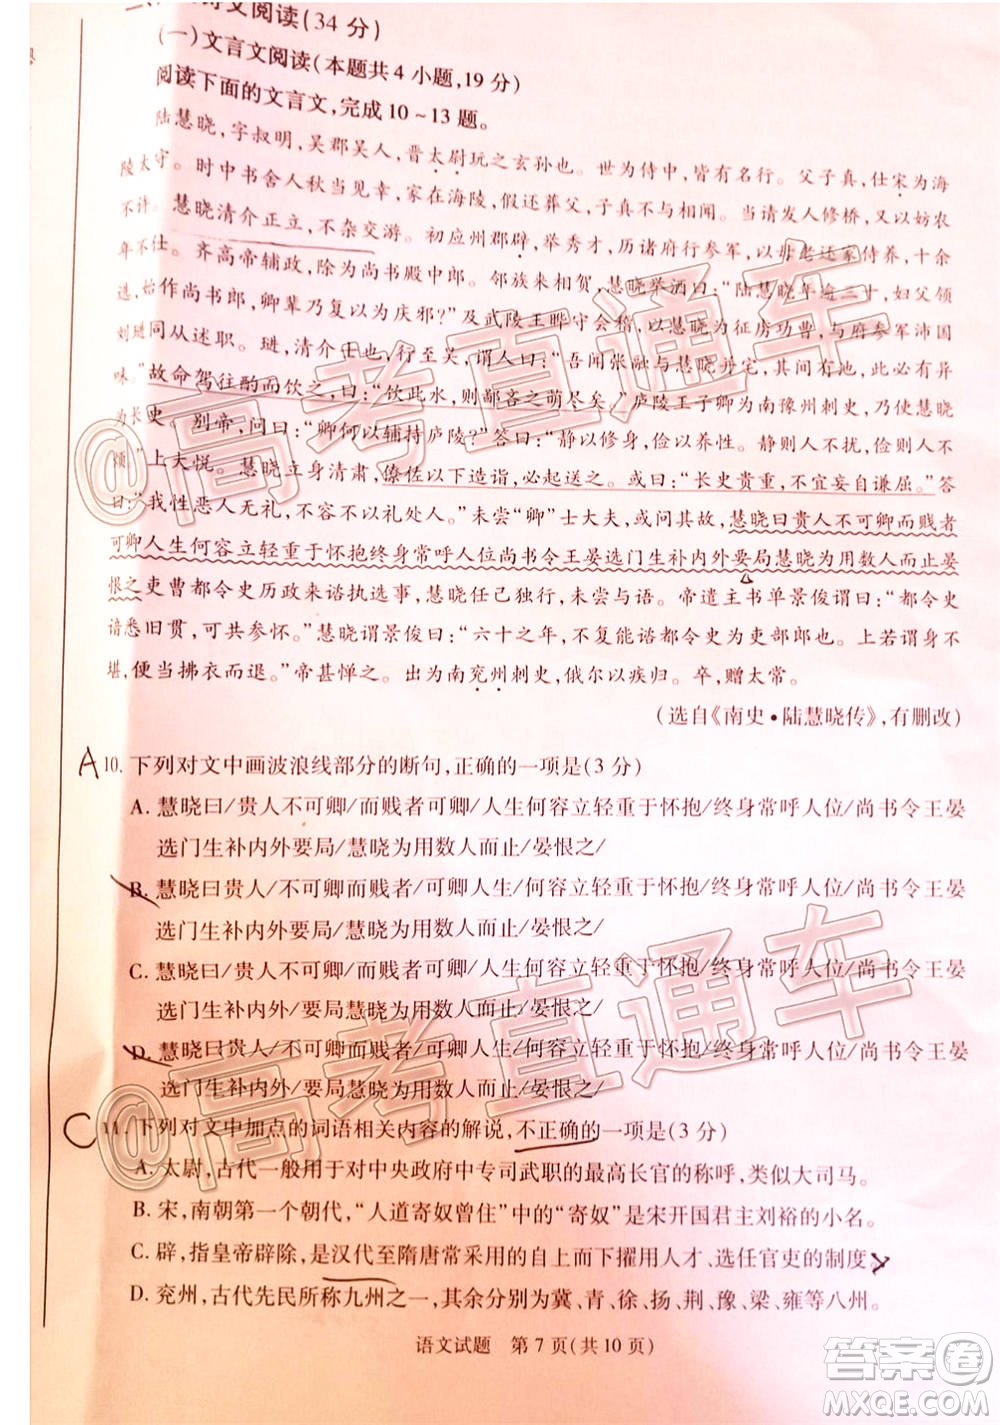 诗文阅读(34分)
(一)文言文阅读(本题共4小题,19分)
阅读下面的文言文,完成10~13题。
陆慧晓,字叔明,吴郡吴人,晋太尉玩之玄孙也。世为侍中,皆有名行。父子真,仕宋为海
陵太守。时中书舍人秋当见幸,家在海陵,假还葬父,子真不与相闻。当请发人修桥,又以妨农
不许。慧晓清介正立,不杂交游。初应州郡辟,举秀才,历诸府行参军,以母老还家侍养,十余
年不仕。齐高帝辅政,除为尚书殿中郎。邻族来相贺,慧晓举酒曰:“陆慧晓年逾三十,妇父领
选,始作尚书郎,卿辈乃复以为庆邪?”及武陵王晔守会稽,以慧晓为征虏功曹,与府参军沛国
刘琎同从述职。琎,清介士也,行至吴,谓人曰:“吾闻张融与慧晓并宅,其间有水,此必有异
味。”故命驾往酌而饮之,曰:“饮此水,则鄙吝之萌尽矣。”庐陵王子卿为南豫州刺史,以慧晓
为长史。别帝,问曰:“卿何以辅持庐陵?”答曰:“静以修身,俭以养性。静则人不扰,俭则人不
烦。”上大悦。慧晓立身清肃,僚佐以下造诣,必起送之。或曰:“长史贵重,不宜妄自谦屈。”答
曰:“我性恶人无礼,不容不以礼处人。”未尝“卿”士大夫,或问其故,慧晓曰贵人不可卿而贱者
可卿人生何容立轻重于怀抱终身常呼人位尚书令王晏选门生补内外要局慧晓为用数人而止晏
恨之吏曹都令史历政来谘执选事,慧晓任已独行,未尝与语。帝遣主书单景俊谓曰:“都令史
谙悉旧贯,可共参怀。”慧晓谓景俊曰:“六十之年,不复能谘都令史为吏部郎也。上若谓身不
堪,便当拂衣而退。”帝甚惮之。出为南兖州刺史,俄尔以疾归。卒,赠太常。
(选自《南史·陆慧晓传》,有删改)
A 10. 下列对文中画波浪线部分的断句,正确的一项是(3分)
A. 慧晓曰/贵人不可卿/而贱者可卿/人生何容立轻重于怀抱/终身常呼人位/尚书令王晏
选门生补内外要局/慧晓为用数人而止/晏恨之/
B. 慧晓曰贵人/不可卿而贱者/可卿人生/何容立轻重于怀抱/终身常呼人位/尚书令王晏
选门生补内外要局/慧晓为用数人而止/晏恨之/
C. 慧晓曰/贵人不可卿/而贱者可卿/人生何容立轻重于怀抱/终身常呼人位/尚书令王晏
选门生补内外/要局慧晓为用数人而止/晏恨之/
D. 慧晓曰贵人/不可卿而贱者/可卿人生/何容立轻重于怀抱/终身常呼人位/尚书令王晏
选门生补内外/要局慧晓为用数人而止/晏恨之/
C 11. 下列对文中加点的词语相关内容的解说,不正确的一项是(3分)
A. 太尉,古代一般用于对中央政府中专司武职的最高长官的称呼,类似大司马。
B. 宋,南朝第一个朝代,“人道寄奴曾住”中的“寄奴”是宋开国君主刘裕的小名。
C. 辟,指皇帝辟除,是汉代至隋唐常采用的自上而下擢用人才、选任官吏的制度。
D. 兖州,古代先民所称九州之一,其余分别为冀、青、徐、扬、荆、豫、梁、雍等八州。
语文试题 第7页(共10页)
@高考直通车
@高考直通车
答案圈
MXQE.COM